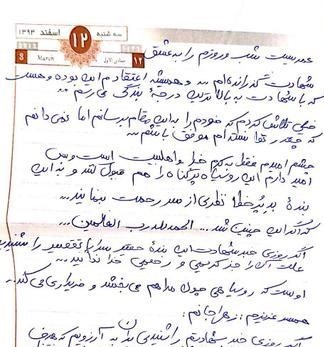 سه شنبه ۱۲ اسفند ۱۳۹۳
3 March ۱۲ جمادی الاول
عمریست شب و روزم را به عشق
شهادت گذرانده‌ام ... و همیشه اعتقادم این بوده و هست
که با شهادت به بالاترین درجه بندگی می‌رسم ...
خیلی تلاش کردم که خودم را به این مقام برسانم اما نمی‌دانم
که چقدر توانسته‌ام موفق باشم ...
چشم امیدم فقط به کرم خدا و اهلبیت است و بس
امید دارم این رو سیاه پر گناه را هم قبول کنند و به این
بنده پر خطا نظری از سر رحمت بنمایند ...
که اگر این چنین شد ... الحمدلله رب العالمین ...
اگر روزی خبر شهادت این بنده حقیر سراپا تقصیر را شنیدید
علت آنرا جز کرمی و رحیمی خدا ندانید ...
اوست که رو سیاهی چون مرا هم می‌بخشد و خریداری می‌کند ...
همسر عزیزم : زهرا جانم :
اگر روزی خبر شهادتم را شنیدی بدان به آرزویم که هدف